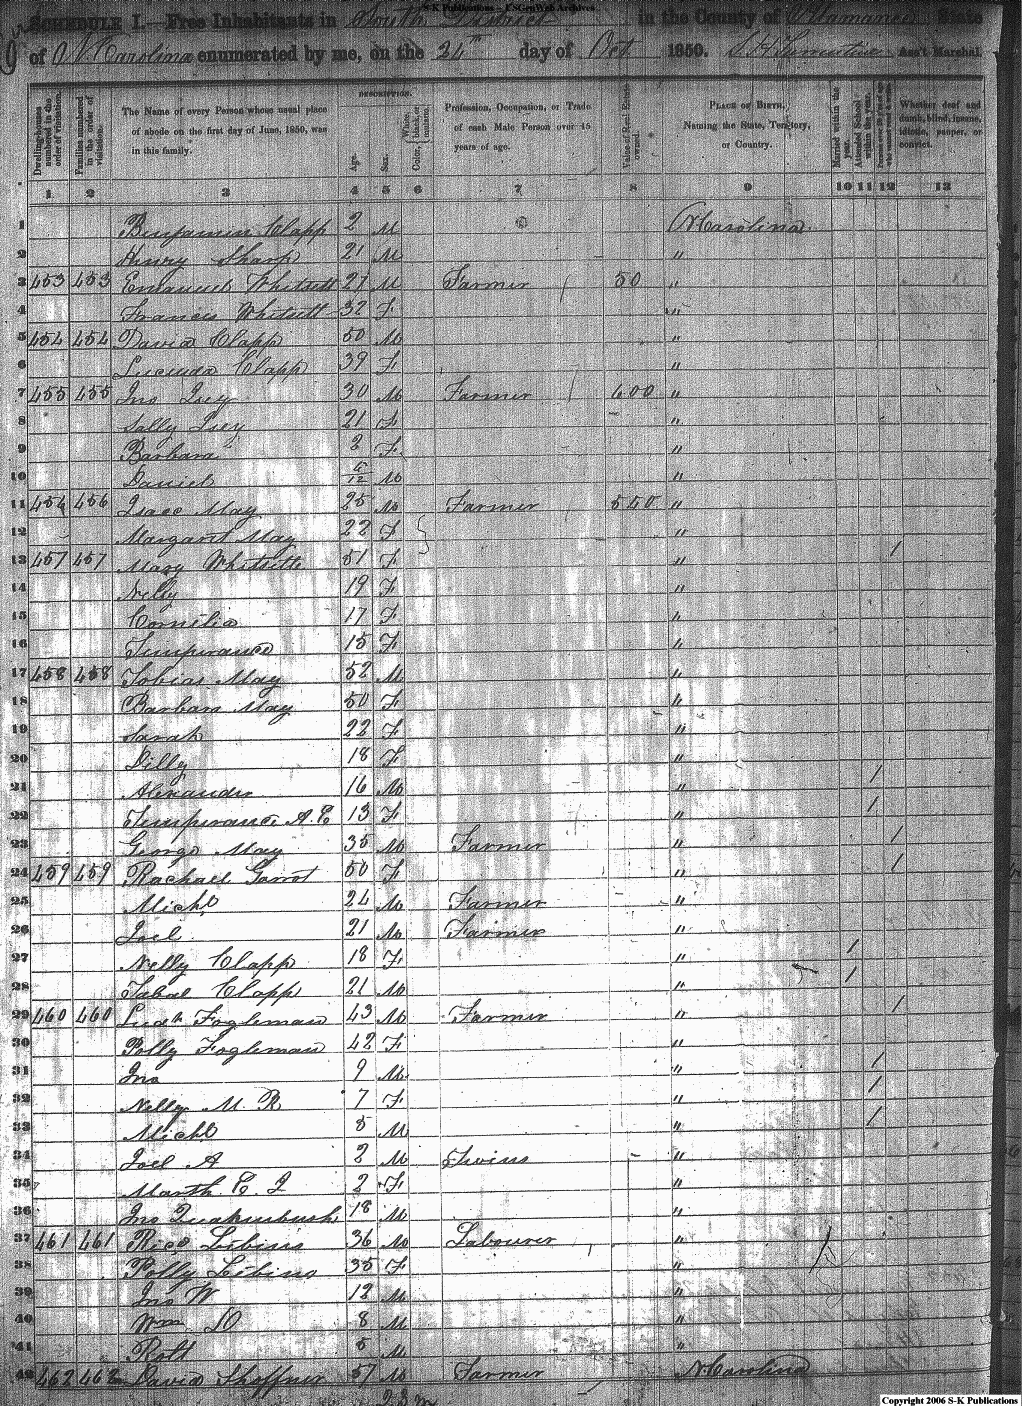 S-K Publications - USGenWeb Archives
SCHEDULE I.—Free Inhabitants in South District in the County of Allamance State
of N. Carolina enumerated by me, on the 24th day of Oct 1850. Ass't Marshal.
Dwelling-houses numbered in the order of visitation.
Families numbered in the order of visitation.
The Name of every Person whose usual place of abode on the first day of June, 1850, was in this family.
DESCRIPTION.
Age.
Sex.
Color, { White, black, or mulatto.
Profession, Occupation, or Trade of each Male Person over 15 years of age.
Value of Real Estate owned.
PLACE OF BIRTH, Naming the State, Territory, or Country.
Married within the year.
Attended School within the year.
Whether deaf and dumb, blind, insane, idiotic, pauper, or convict.
1 2 3 4 5 6 7 8 9 10 11 12 13
1 Benjamin Clapp 2 M N Carolina
2 Henry Sharp 21 M "
3 453 453 Emanuel Whitsett 27 M Farmer 50 "
4 Frances Whitsett 32 F "
5 454 454 David Clapp 50 M "
6 Lucinda Clapp 39 F "
7 455 455 Jno 30 M Farmer 600 "
8 Sally 21 F "
9 Barbara 2 F "
10 Daniel /12 M "
11 456 456 Isaac May 25 M Farmer 540 "
12 Margaret May 22 F "
13 457 457 Mary Whitsette 51 F " /
14 Nelly 19 F "
15 Cornelia 17 F "
16 Temperance 15 F "
17 458 458 Tobias May 52 M "
18 Barbara May 50 F "
19 Sarah 22 F "
20 Dilly 18 F "
21 Alexander 16 M " /
22 Temperance A.E 13 F " /
23 George May 35 M Farmer " /
24 459 459 Rachael Garrot 50 F " /
25 Michl 24 M Farmer "
26 Joel 21 M Farmer "
27 Nelly Clapp 18 F " /
28 Clapp 21 M " /
29 460 460 Fogleman 43 M Farmer " /
30 Polly Fogleman 42 F "
31 Jno 9 M " /
32 Nelly M. R 7 F " /
33 Michl 5 M " /
34 Joel A 2 M Twins "
35 Marth E. J 2 F "
36 Jno Quakinbush 18 M "
37 461 461 Ricd Libins 36 M Labourer "
38 Polly Libins 35 F "
39 Jno W 12 M "
40 Wm D 8 M "
41 Robt 5 M "
42 462 462 David Shoffner 57 M Farmer N Carolina
Copyright 2006 S-K Publications